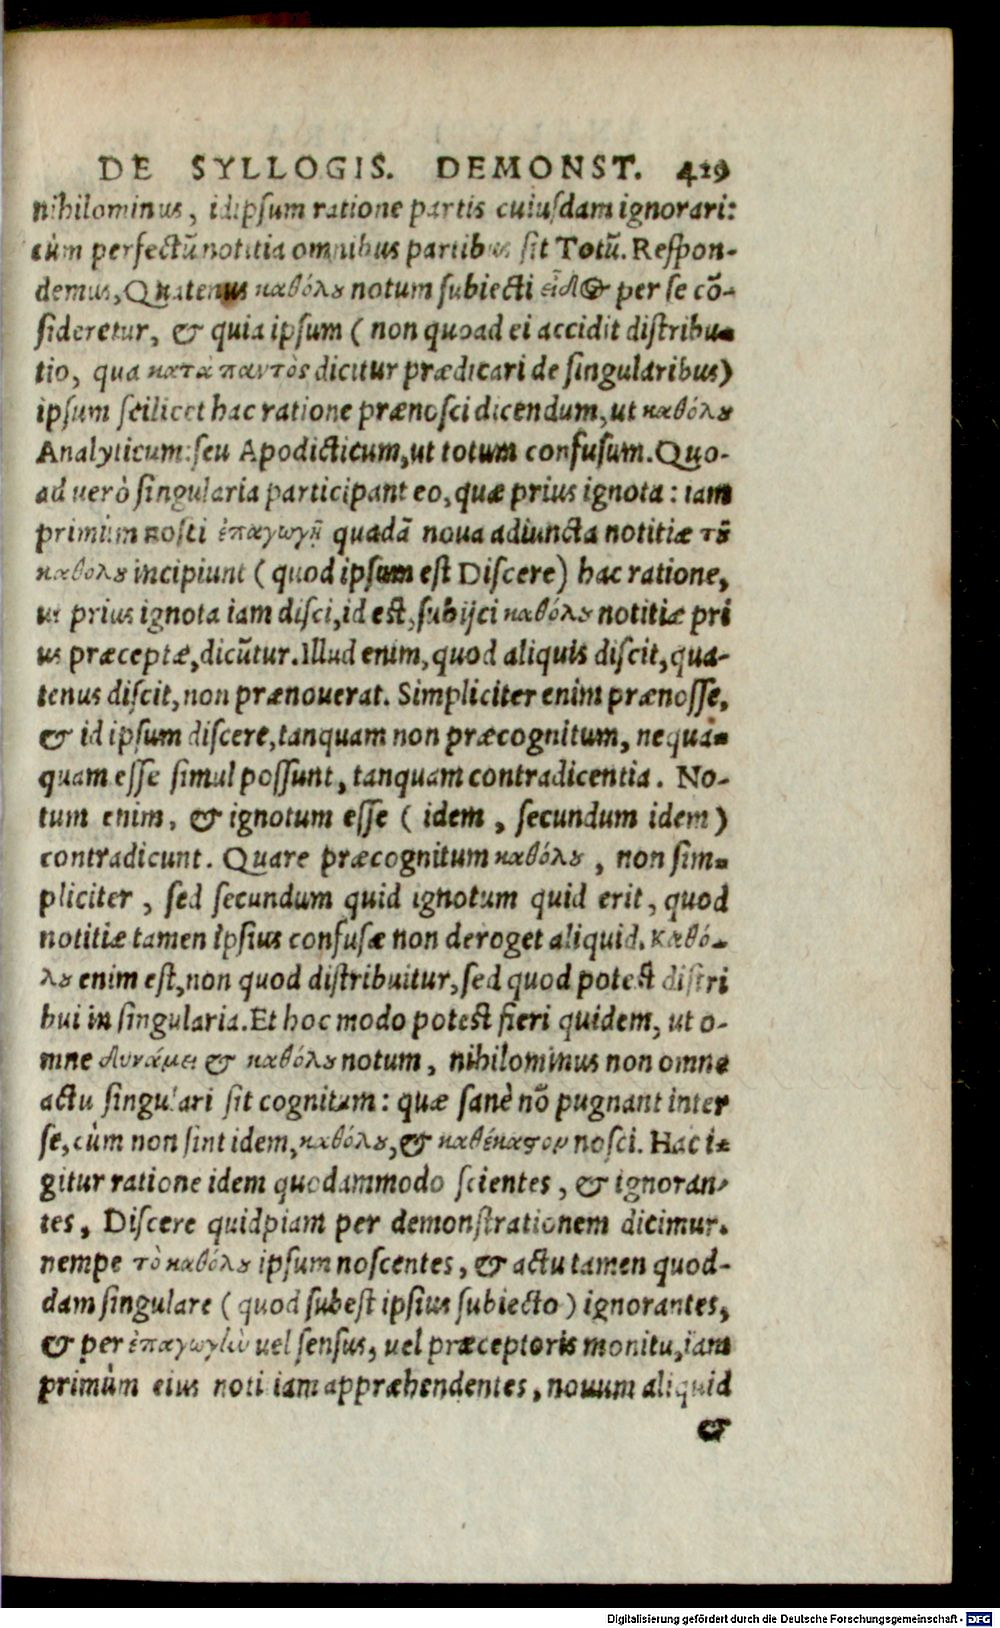 DE SYLLOGIS. DEMONST. 419
nihilominus, idipsum ratione partis cuiusdam ignorari:
cùm perfectũ notitia omnibus partibus sit Totũ. Respon-
demus, Quatenus καθόλȣ notum subiecti εἶδος per se cõ-
sideretur, & quia ipsum (non quoad ei accidit distribu-
tio, qua κατὰ παντὸς dicitur prædicari de singularibus)
ipsum scilicet hac ratione prænosci dicendum, ut καθόλȣ
Analyticum: seu Apodicticum, ut totum confusum. Quo-
ad uerò singularia participant eo, quæ prius ignota: iam
primùm nosci ἐπαγωγῇ quadã noua adiuncta notitiæ τȣ͂
καθόλȣ incipiunt (quod ipsum est Discere) hac ratione,
ut prius ignota iam disci, id est, subijci καθόλȣ notitiæ pri
us præceptæ, dicũtur. Illud enim, quod aliquis discit, qua-
tenus discit, non prænouerat. Simpliciter enim prænosse,
& id ipsum discere, tanquam non præcognitum, nequa-
quam esse simul possunt, tanquam contradicentia. No-
tum enim, & ignotum esse (idem, secundum idem)
contradicunt. Quare præcognitum καθόλȣ, non sim-
pliciter, sed secundum quid ignotum quid erit, quod
notitiæ tamen ipsius confusæ non deroget aliquid. Καθό-
λȣ enim est, non quod distribuitur, sed quod potest distri
bui in singularia. Et hoc modo potest fieri quidem, ut o-
mne δυνάμει & καθόλȣ notum, nihilominus non omne
actu singulari sit cognitum: quæ sanè nõ pugnant inter
se, cùm non sint idem, καθόλȣ, & καθέκαϛον nosci. Hac i-
gitur ratione idem quodammodo scientes, & ignoran-
tes, Discere quidpiam per demonstrationem dicimur.
nempe τὸ καθόλȣ ipsum noscentes, & actu tamen quod-
dam singulare (quod subest ipsius subiecto) ignorantes,
& per ἐπαγωγὴν uel sensus, uel præceptoris monitu, iam
primùm eius notitiam appræhendentes, nouum aliquid
&
Digitalisierung gefördert durch die Deutsche Forschungsgemeinschaft - DFG